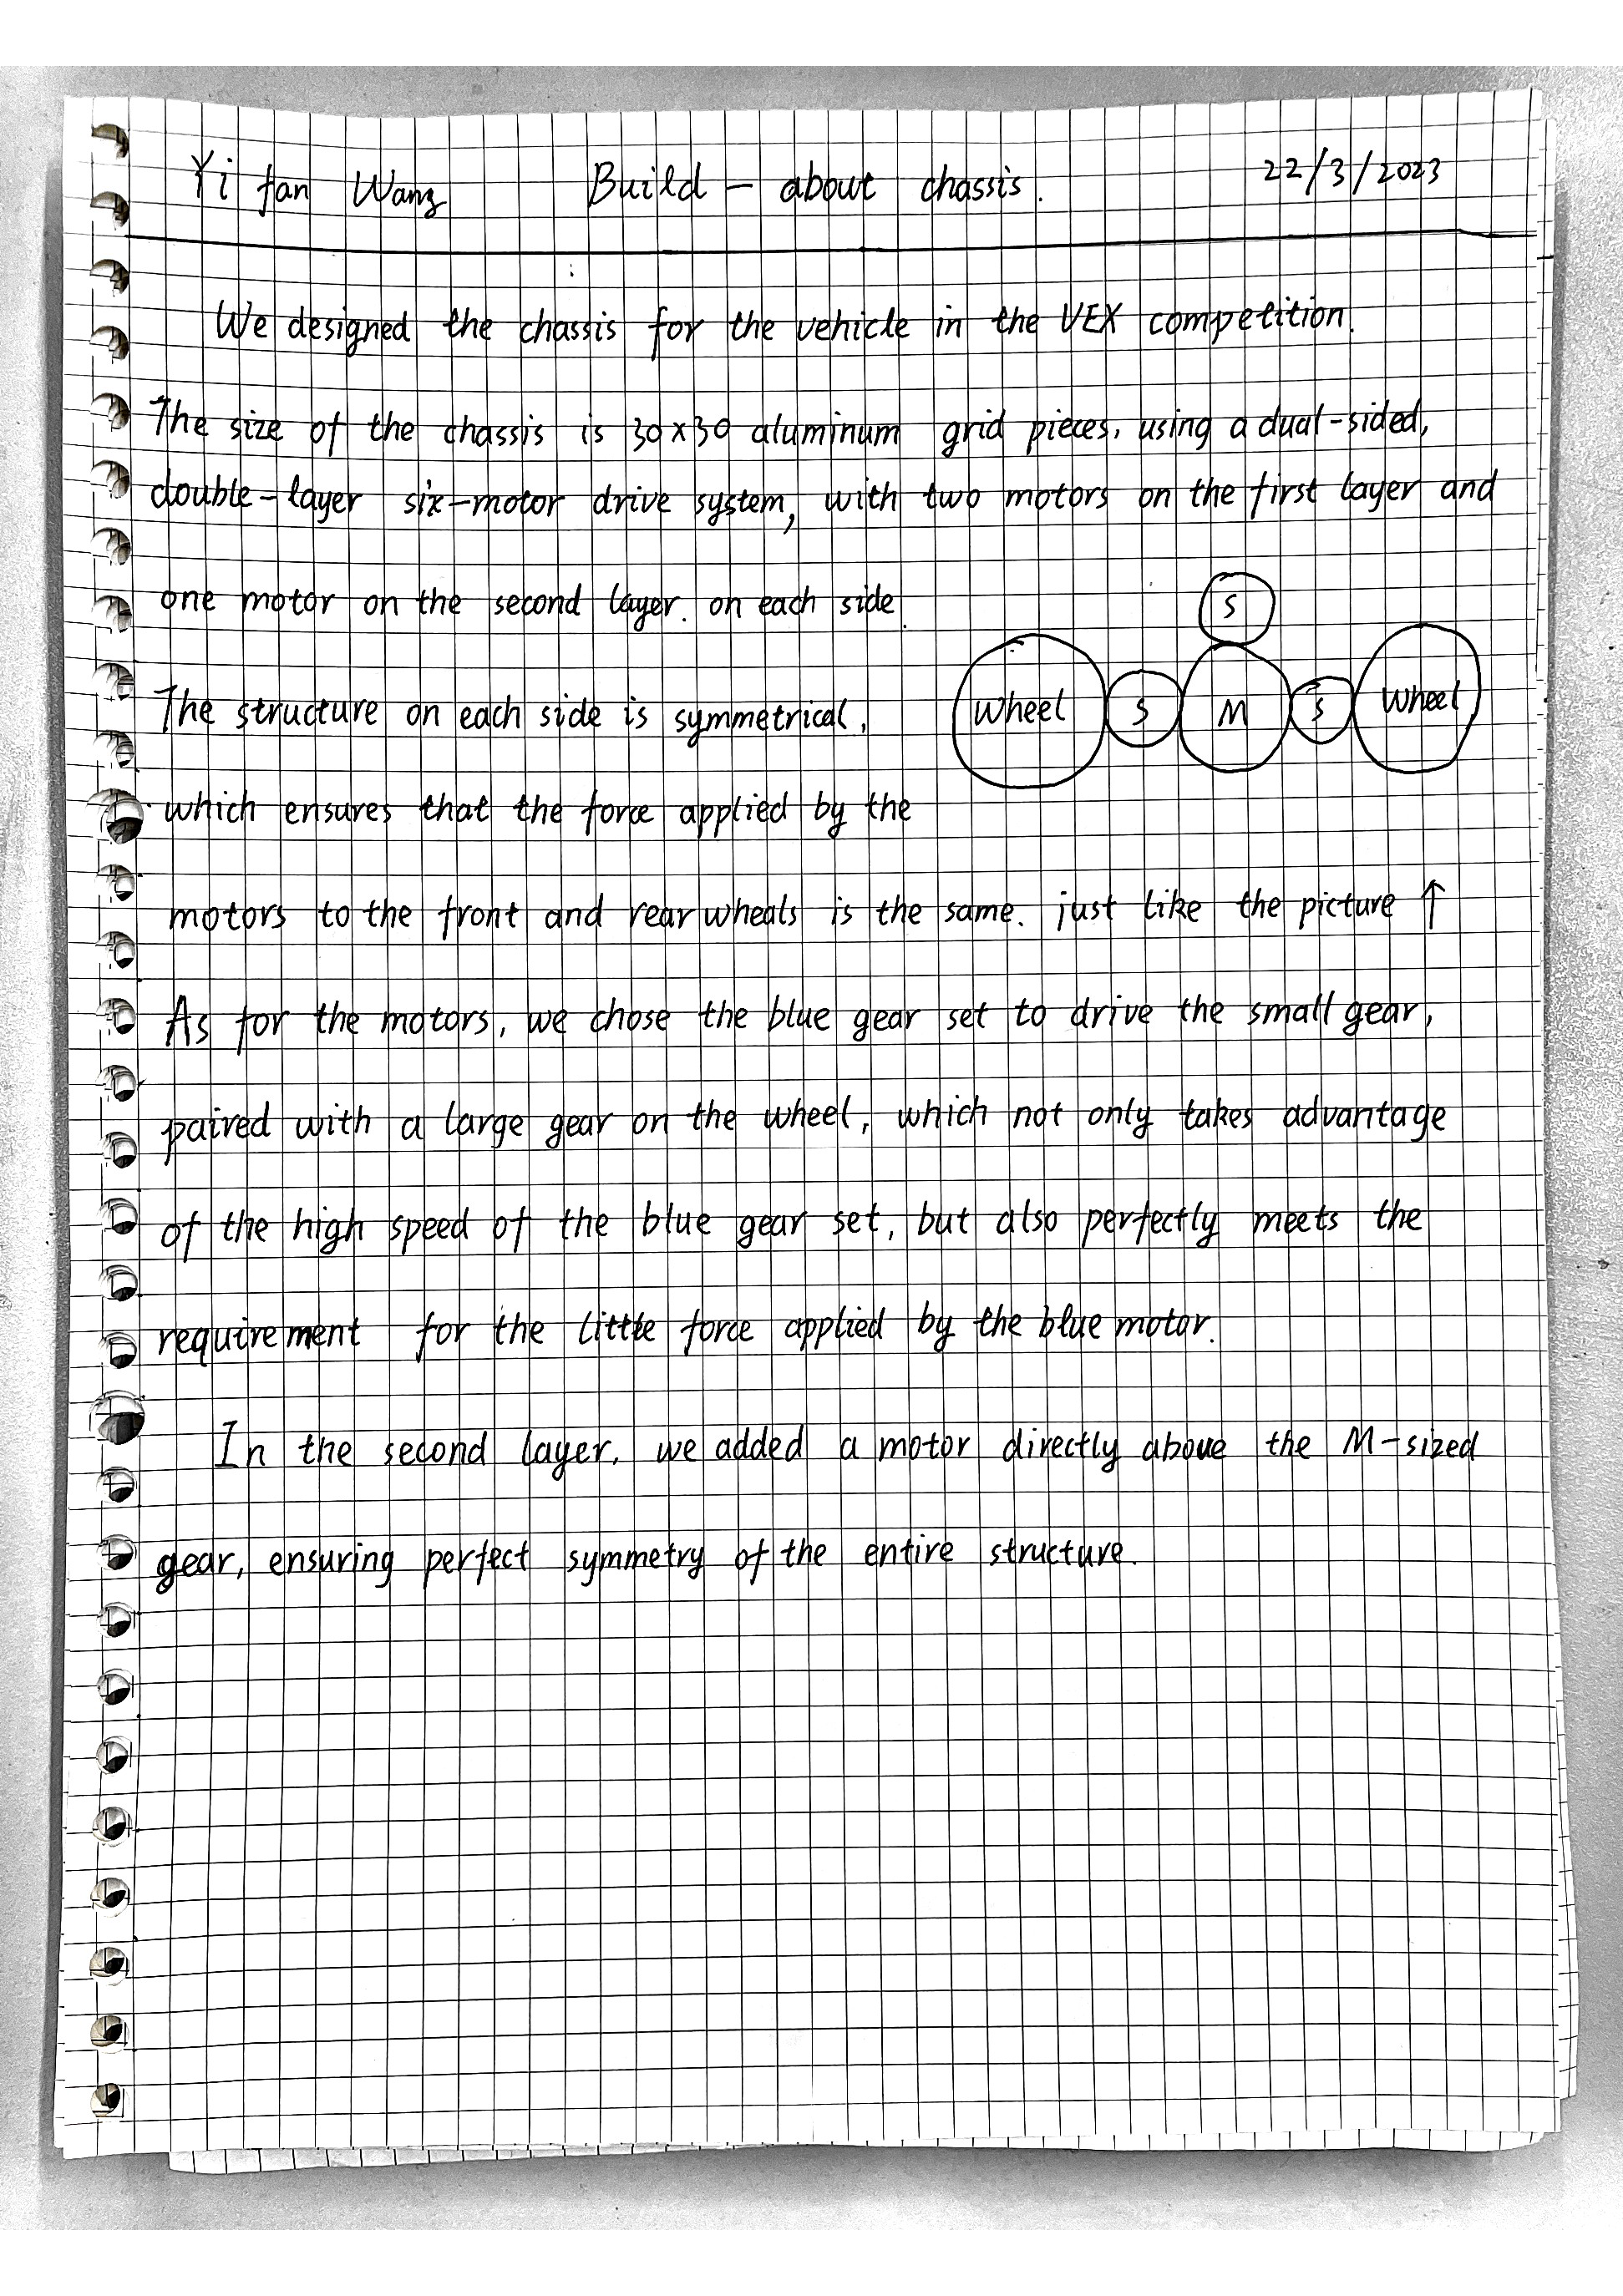 Yi fan Wang Build - about chassis. 22/3/2023
We designed the chassis for the vehicle in the VEX competition.
The size of the chassis is 30×30 aluminum grid pieces, using a dual-sided,
double-layer six-motor drive system, with two motors on the first layer and
one motor on the second layer. on each side.
S
Wheel S M S Wheel
The structure on each side is symmetrical,
which ensures that the force applied by the
motors to the front and rear wheals is the same. just like the picture ↑
As for the motors, we chose the blue gear set to drive the small gear,
paired with a large gear on the wheel, which not only takes advantage
of the high speed of the blue gear set, but also perfectly meets the
requirement for the little force applied by the blue motor.
In the second layer, we added a motor directly above the M-sized
gear, ensuring perfect symmetry of the entire structure.